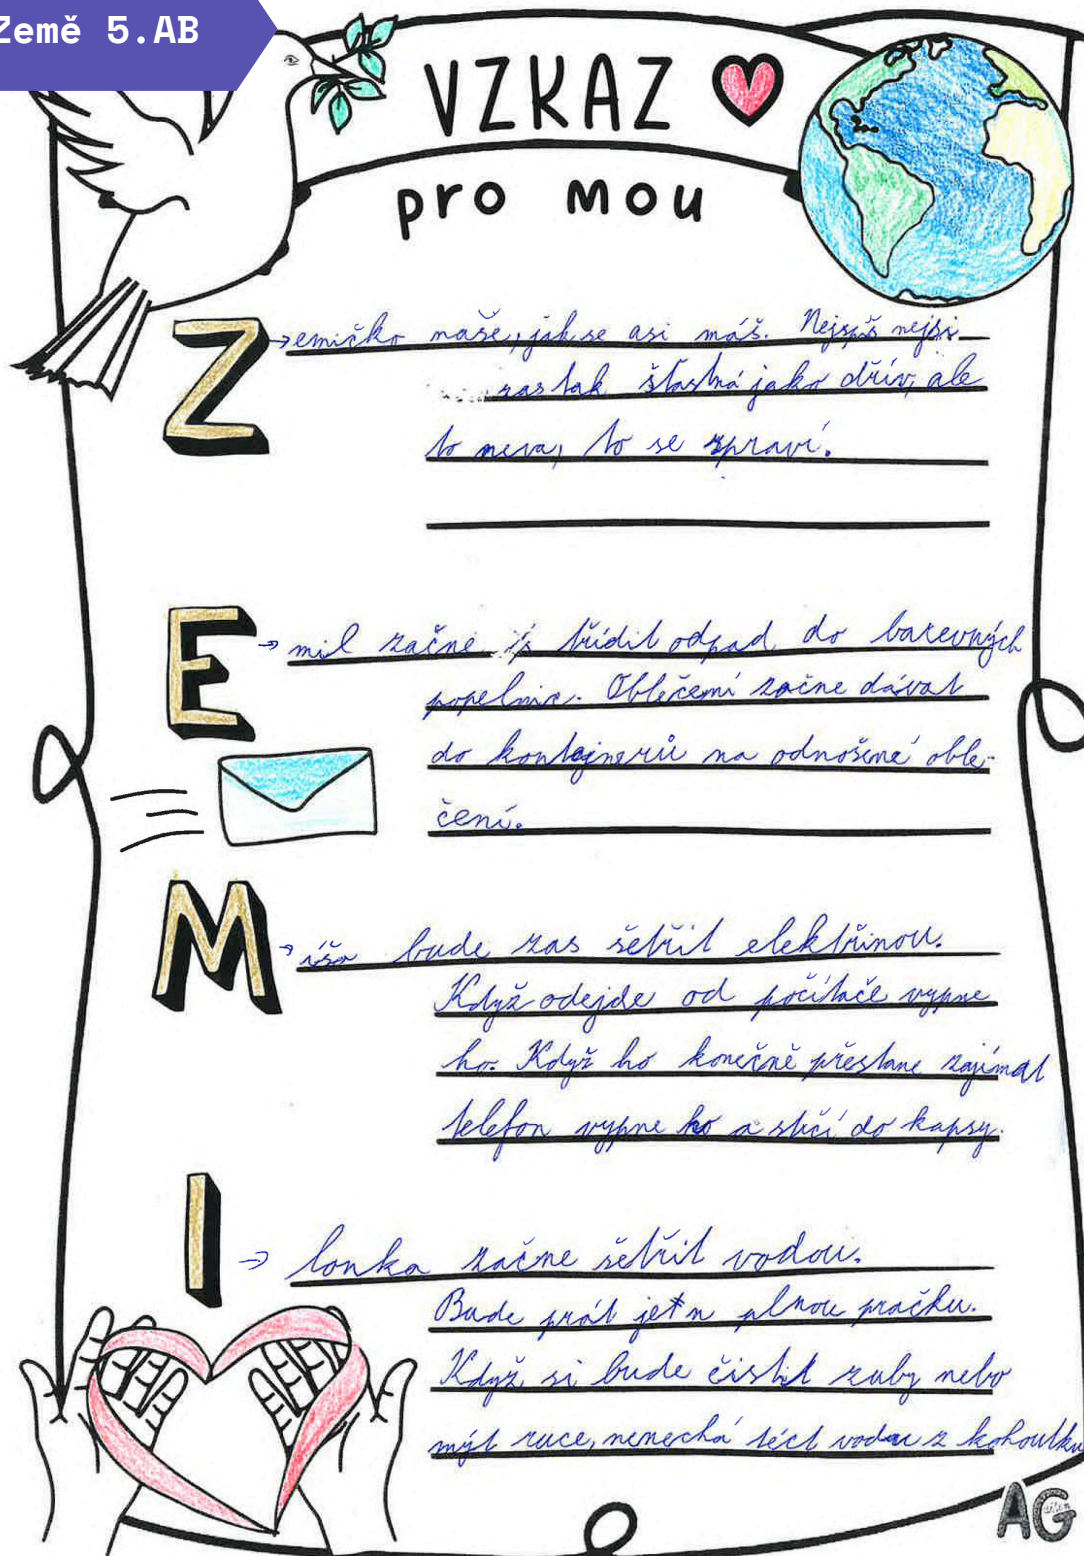 Země 5.AB
VZKAZ
pro mou
Z → emičko naše, jak se asi máš. Nejspíš nejsi
zas tak šťastná jako dřív, ale
to neva, to se spraví.
E → mil začne třídit odpad do barevných
popelnic. Oblečení začne dávat
do kontejnerů na odnošené oble-
čení.
M → íša bude zas šetřit elektřinou.
Když odejde od počítače vypne
ho. Když ho konečně přestane zajímat
telefon vypne ho a strčí do kapsy.
I → lonka začne šetřit vodou.
Bude prát jen plnou pračku.
Když si bude čistit zuby nebo
mýt ruce, nenechá téct vodu z kohoutku
AG